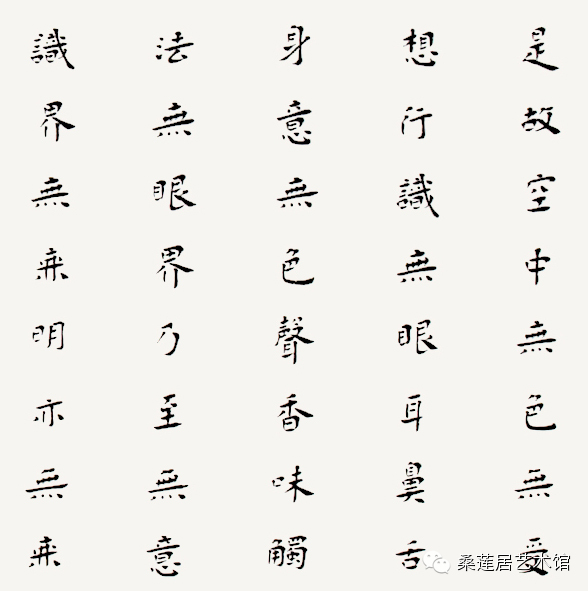 是故空中無色無受
想行識無眼耳鼻舌
身意無色聲香味觸
法無眼界乃至無意
識界無無明亦無無
桑莲居艺术馆